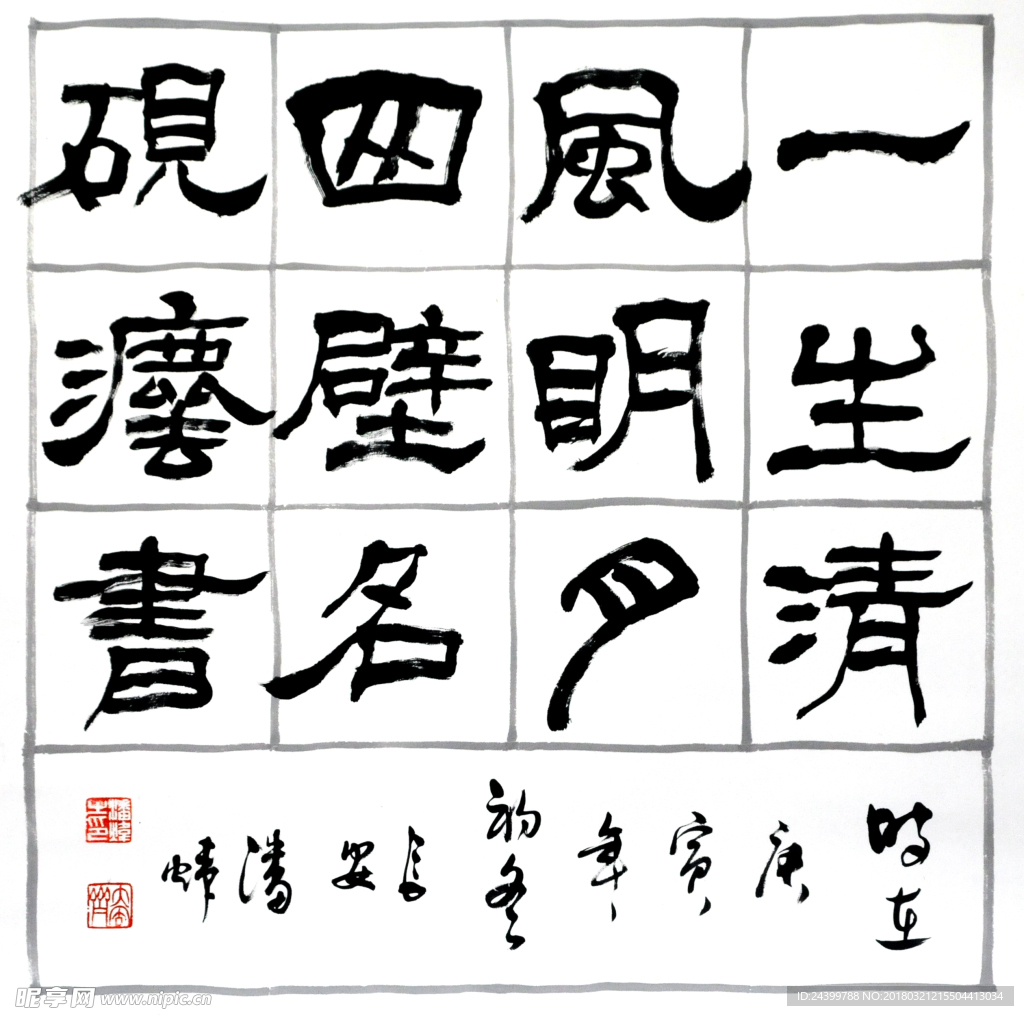 一生清
風明月
四壁名
硯灋書
時在庚寅年初冬長安潘
昵享网 www.nipic.cn
ID:24399788 NO:20180321215504413034